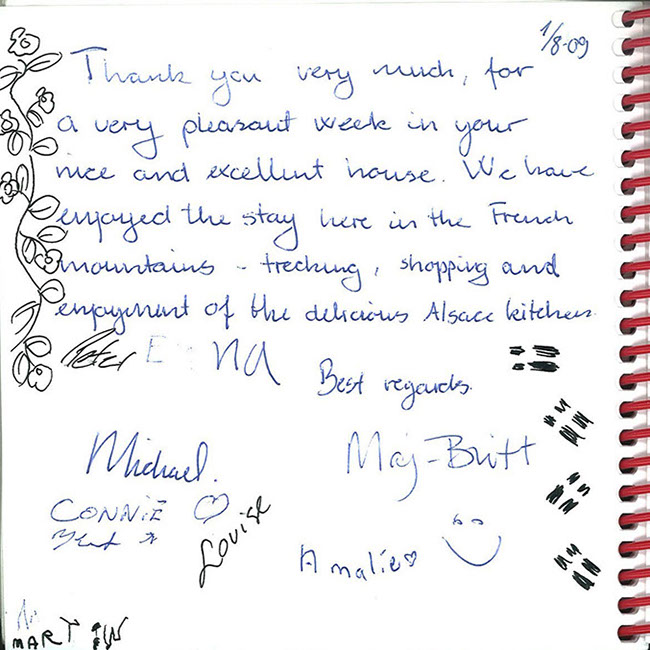 1/8-09
Thank you very much, for
a very pleasant week in your
nice and excellent house. We have
enjoyed the stay here in the French
mountains - trecking, shopping and
enjoyment of the delicious Alsace kitchen.
Peter
Best regards
Michael.
Maj-Britt
CONNIE
Louise
Amalie
MARTIN